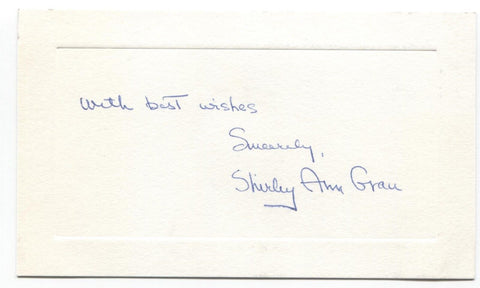 With best wishes
Sincerely,
Shirley Ann Grau